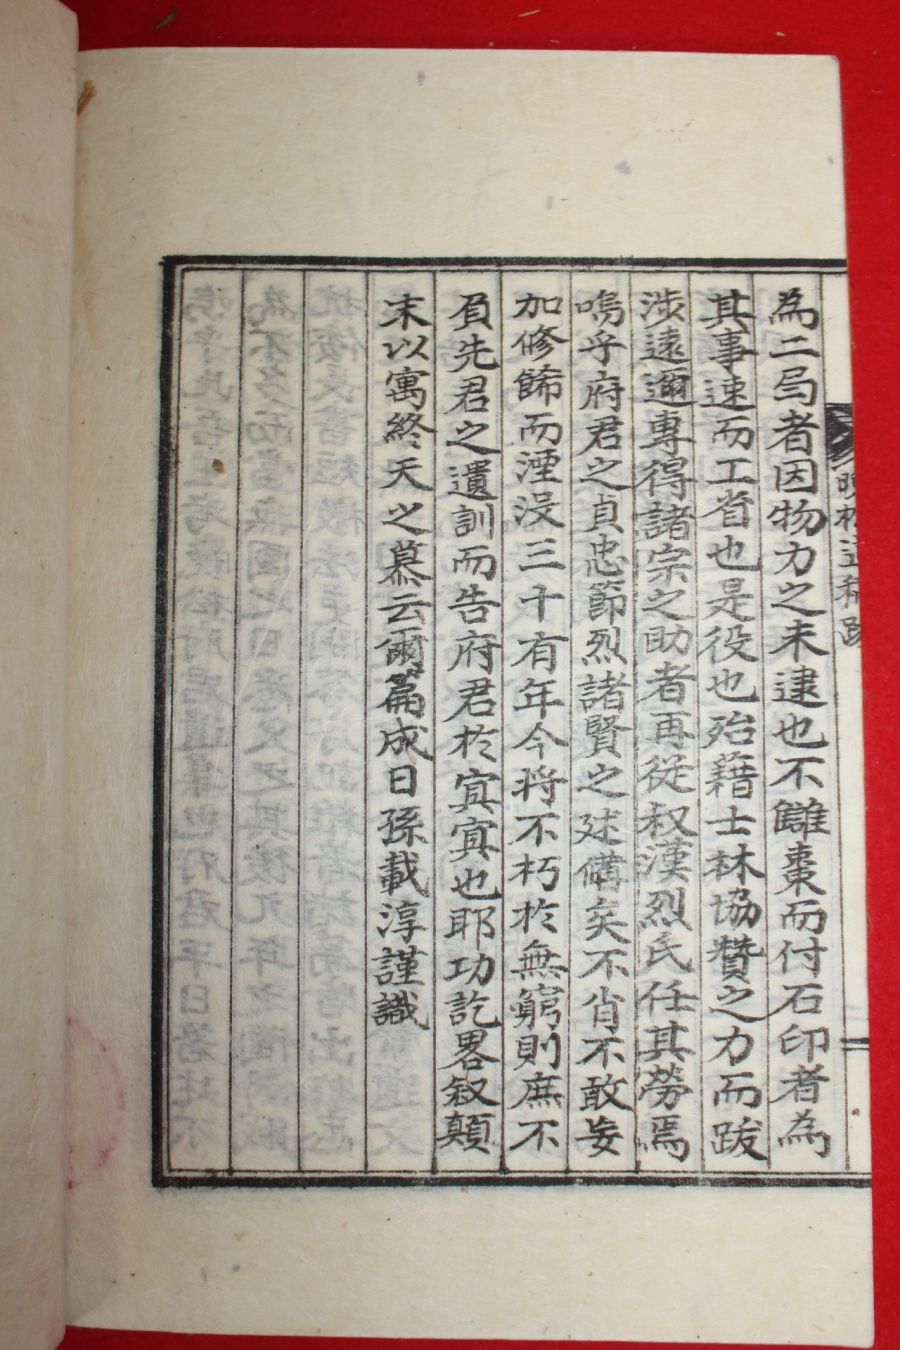 晚松遺稿跋
為二局者因物力之未逮也不讎棗而付石印者為
其事速而工省也是役也殆藉士林協贊之力而跋
涉遠邇專得諸宗之助者再從权漢烈氏任其勞焉
嗚乎府君之貞忠節烈諸賢之述備矣不省不敢妄
加修餙而湮沒三千有年今将不朽於無窮則庶不
負先君之遺訓而告府君於寘寘也耶功訖畧叙顛
末以寓終天之慕云爾篇成日孫載淳謹識